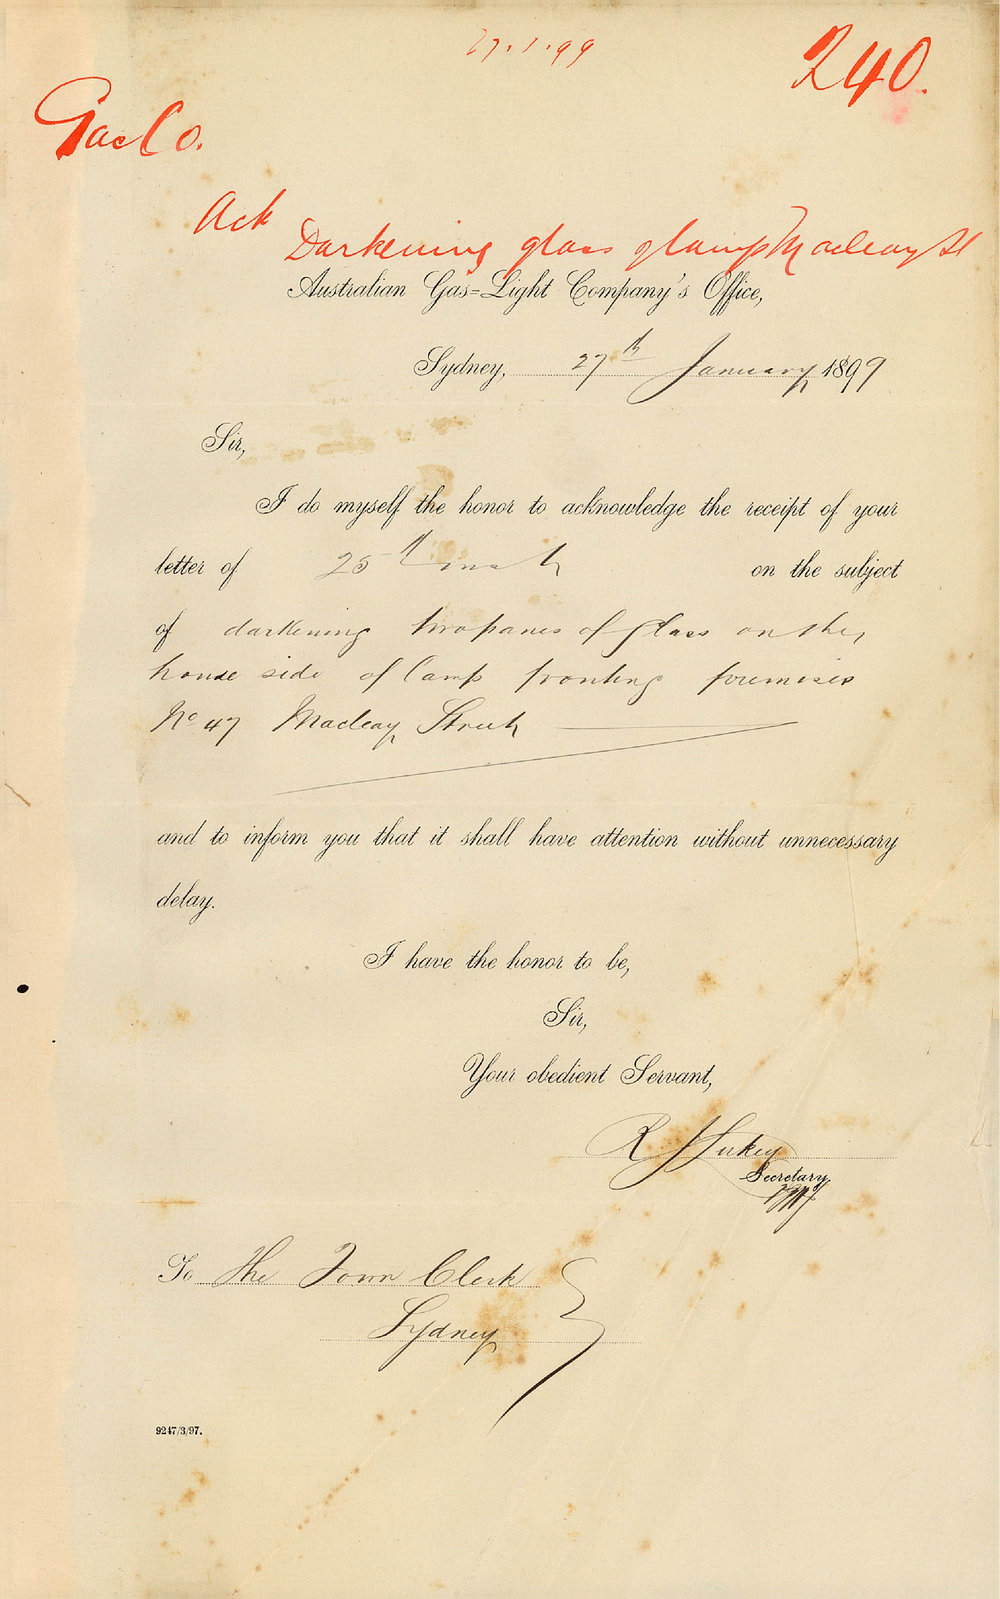 27.1.99
240.
Gas Co.
Ack
Darkening glass of lamp Macleay St
Australian Gas-Light Company's Office,
Sydney, 27th January 1899
Sir,
I do myself the honor to acknowledge the receipt of your
letter of 25th inst on the subject
of darkening two panes of glass on the
house side of lamp fronting premises
No 47 Macleay Street
and to inform you that it shall have attention without unnecessary
delay.
I have the honor to be,
Sir,
Your obedient Servant,
R. J. Lukey
Secretary
To The Town Clerk
Sydney
9247/3/97.